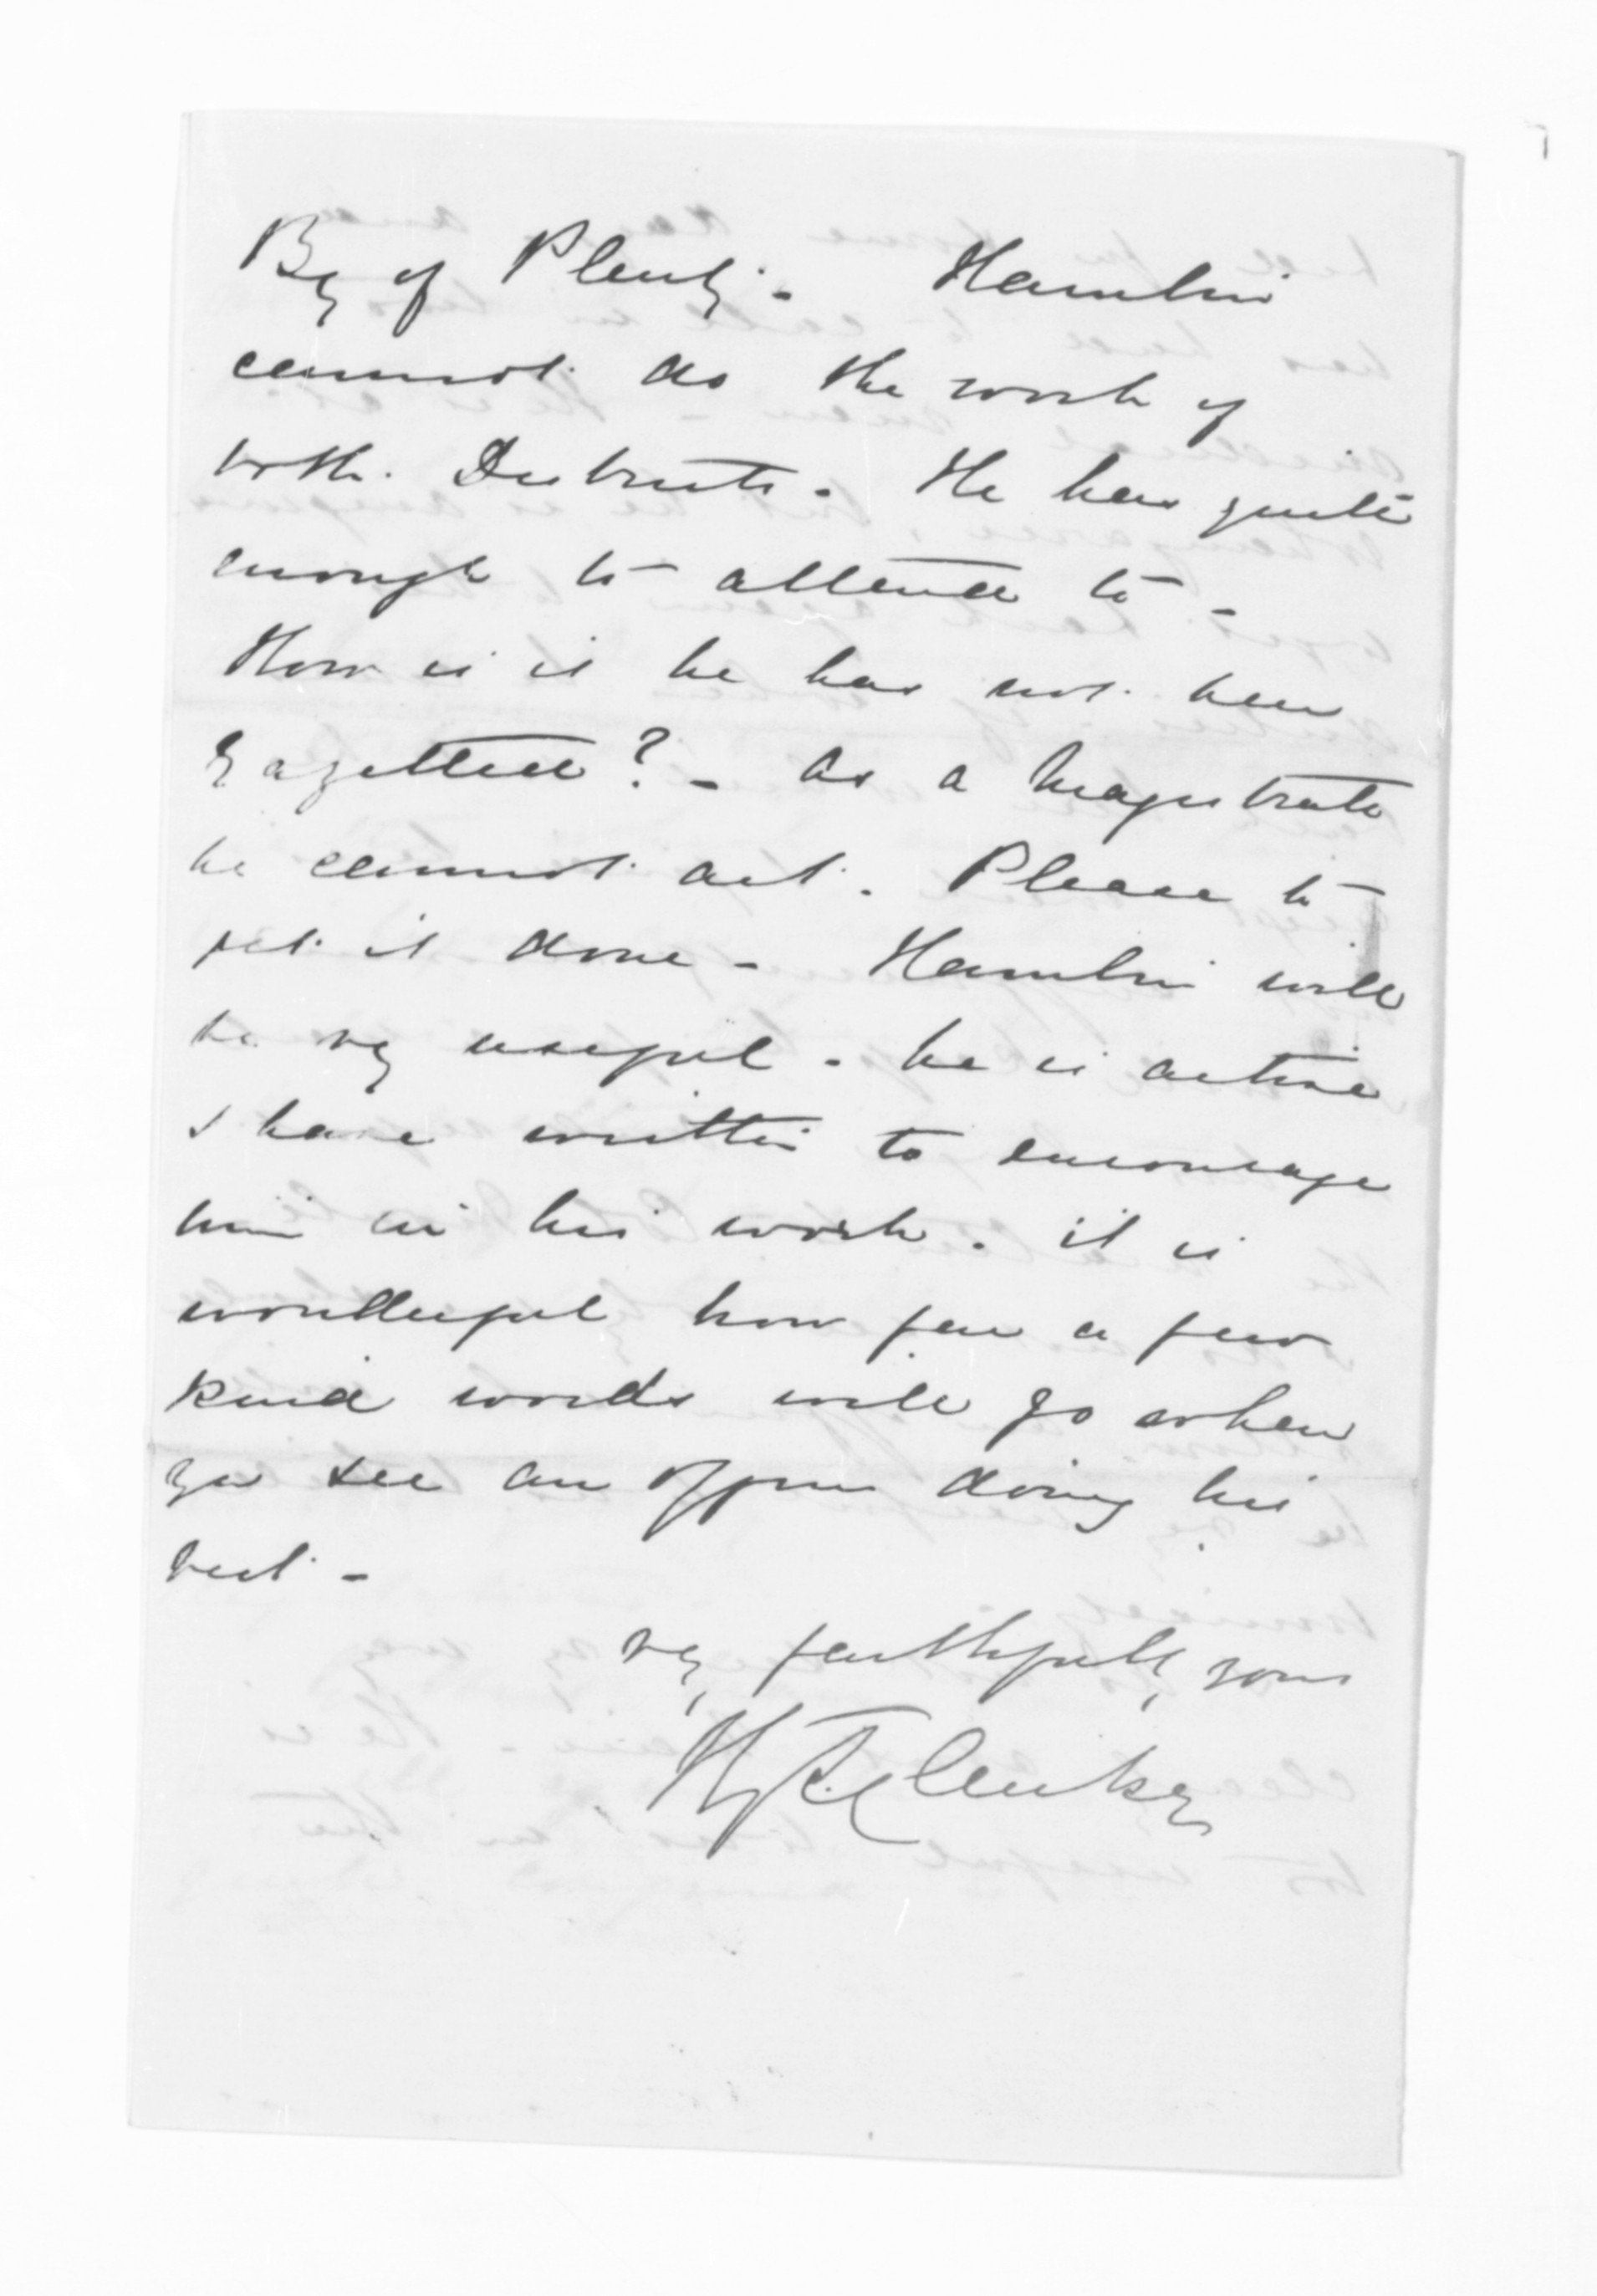 Bay of Plenty - Hamlin
cannot do the work of
both Districts. He has quite
enough to attend to -
How is it he has not been
Gazetted? - As a Magistrate
he cannot act. Please to
get it done - Hamlin will
be vy useful - he is active
I have written to encourage
him in his work. it is
wonderful how far a few
kind words will go when
you see an officer doing his
best -
vy faithfully yours
H T Clarke